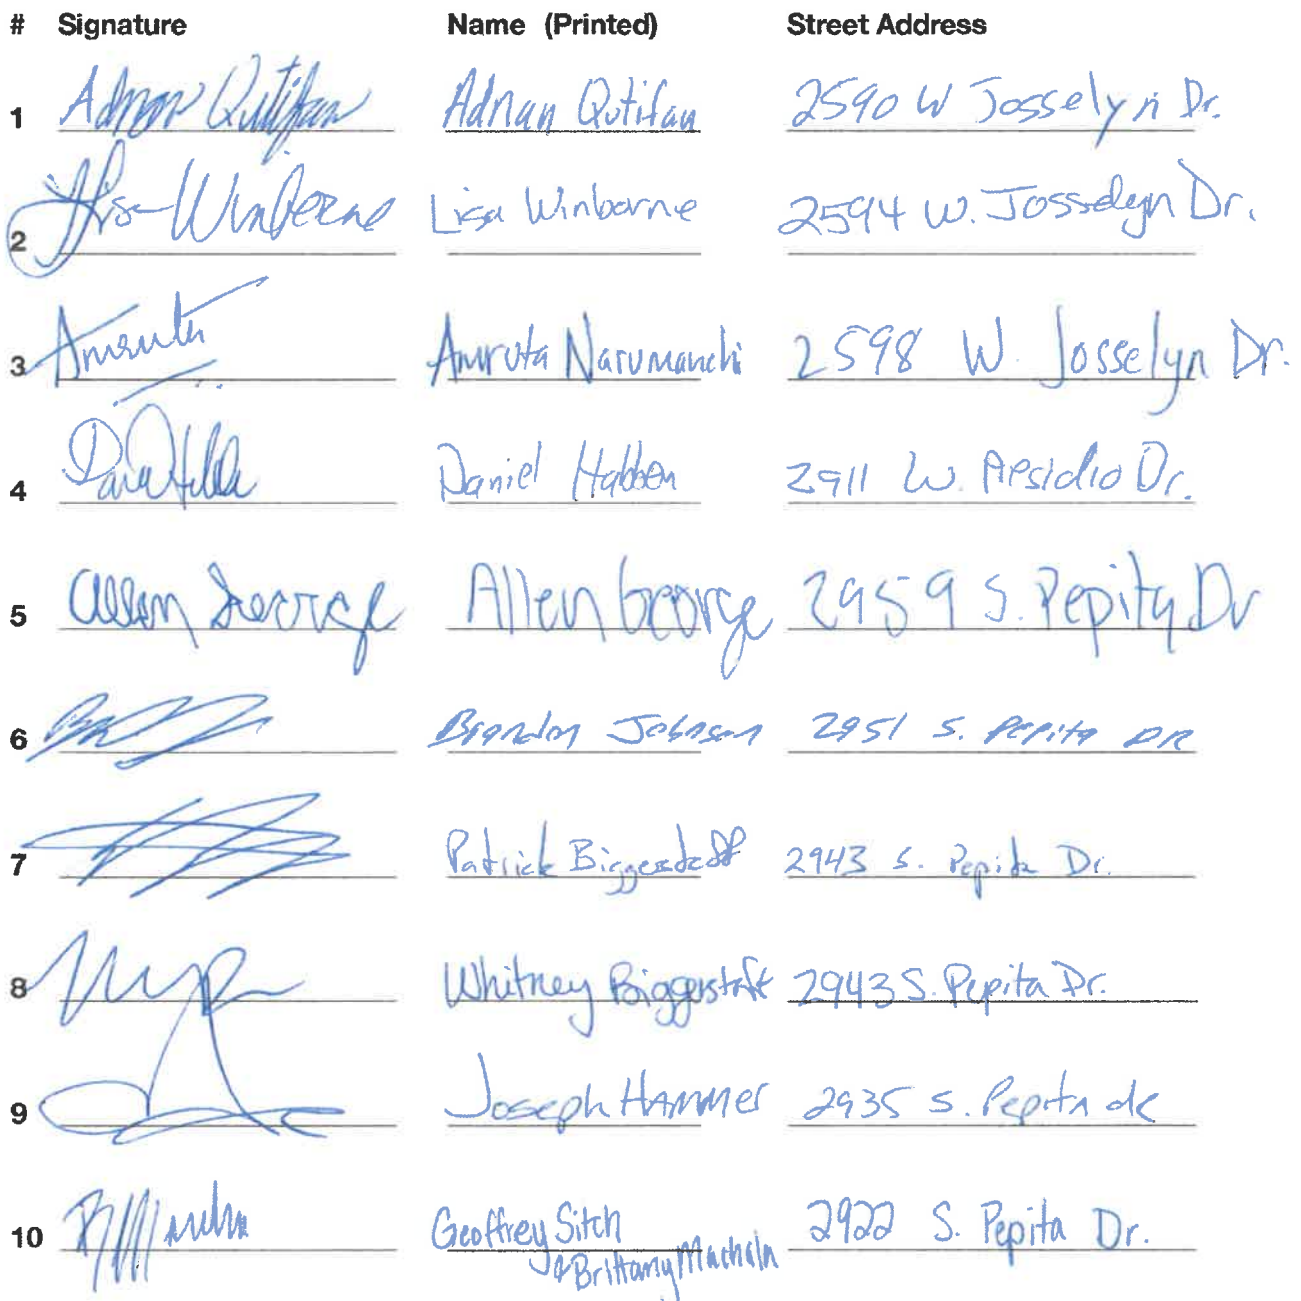 # Signature Name (Printed) Street Address
1 Adnan Qutifan Adnan Qutifan 2590 W Josselyn Dr.
2 Lisa Winborne Lisa Winborne 2594 W. Josselyn Dr.
3 Amruta Amruta Narumanchi 2598 W. Josselyn Dr.
4 Daniel Habben 2911 W. Presidio Dr.
5 Allen George Allen George 2959 S. Pepita Dr
6 Brandon Johnson 2951 S. Pepita DR
7 Patrick Biggerstaff 2943 S. Pepita Dr.
8 Whitney Biggerstaff 2943 S. Pepita Dr.
9 Joseph Hammer 2935 S. Pepita dr
10 Geoffrey Sitch 2922 S. Pepita Dr.
& Brittany Machain